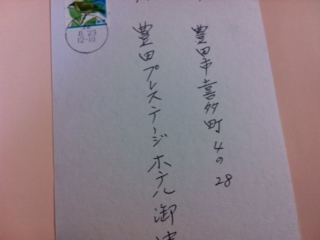 豊田市喜多町4の28
豊田プレステージホテル御
6.23
12-18